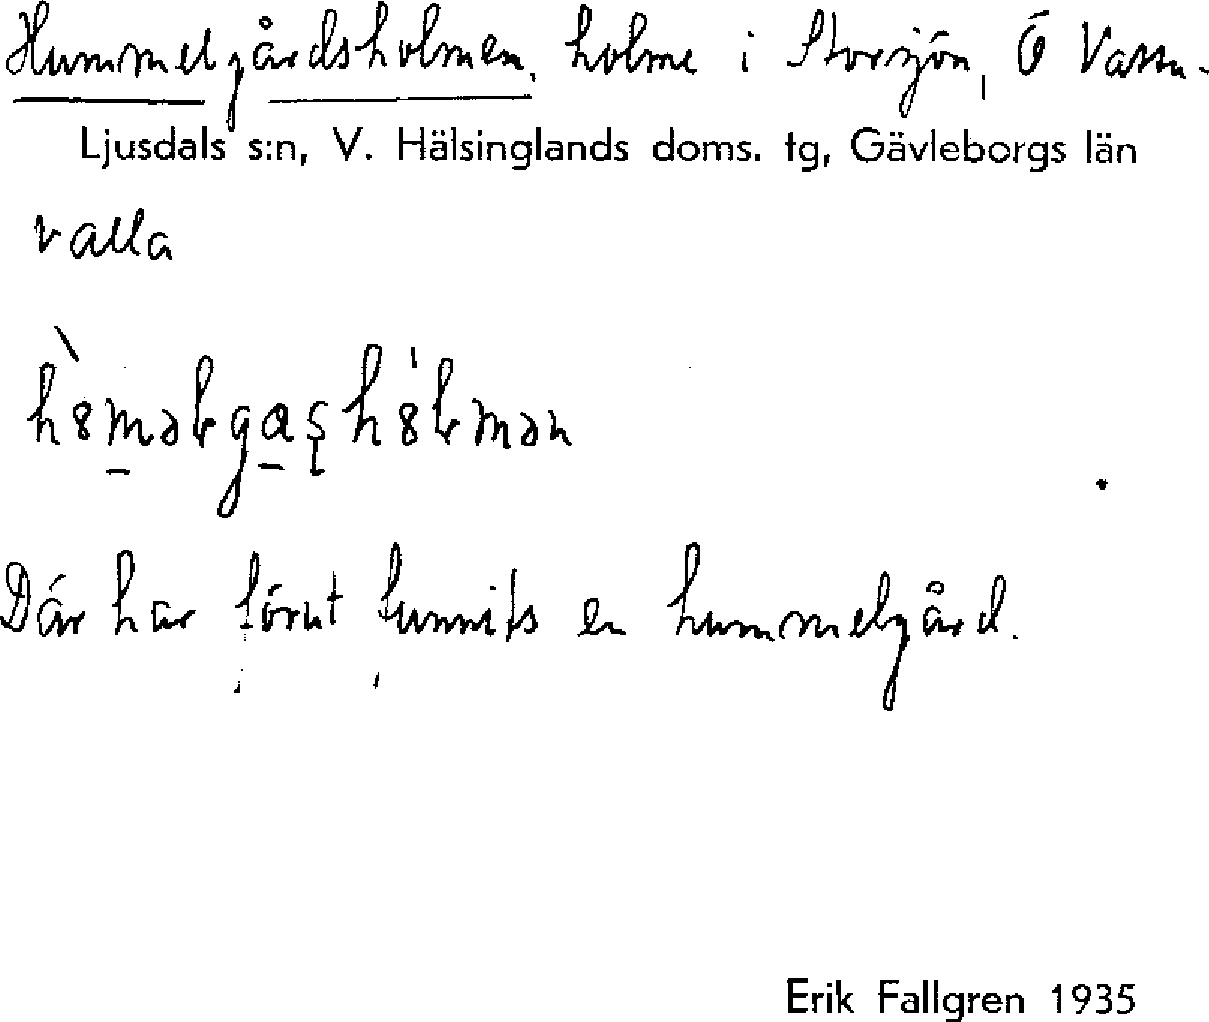 Hummelgårdsholmen, holme i Storsjön, Ö Vassn-
Ljusdals s:n, V. Hälsinglands doms. tg, Gävleborgs län
valla
Där har förut funnits en hummelgård.
Erik Fallgren 1935